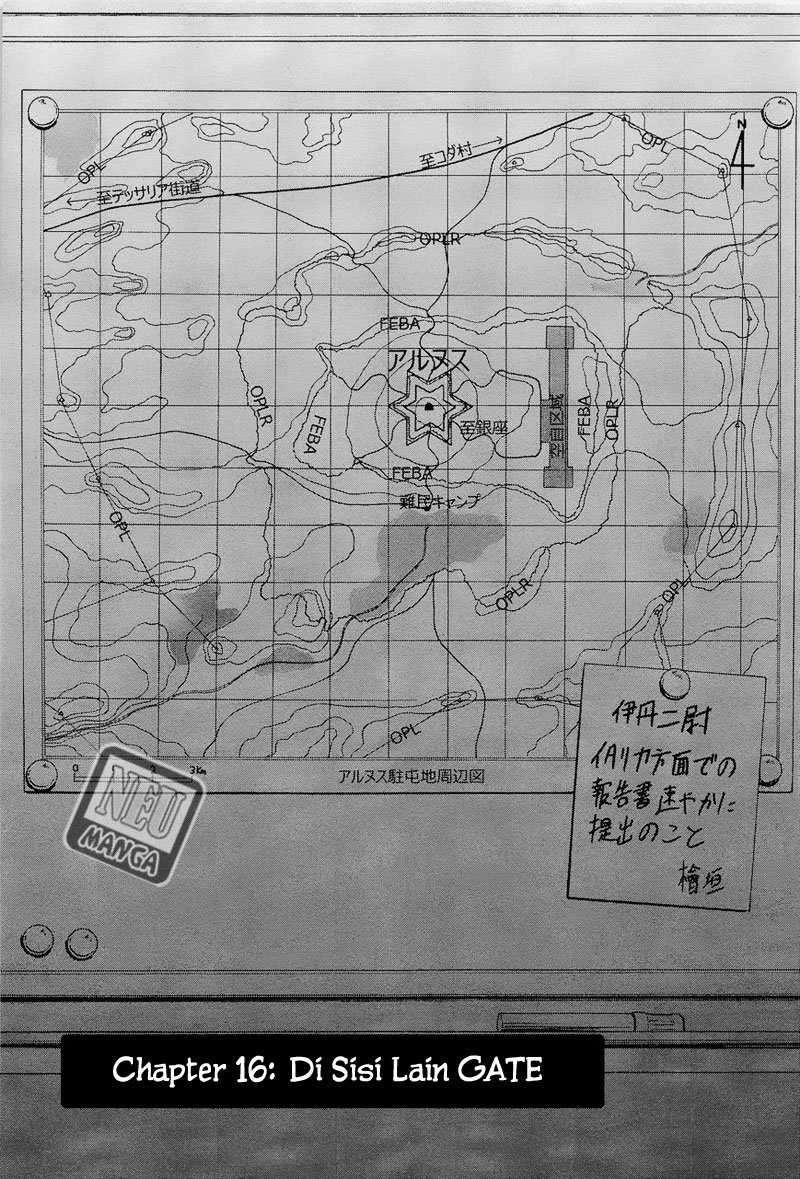 N
OPL
OPL
至コダ村→
←至テッサリア街道
OPLR
FEBA
アルヌス
OPLR
FEBA
至銀座
空自区域
FEBA
OPLR
FEBA
難民キャンプ
OPL
OPLR
OPL
OPL
0
3Km
アルヌス駐屯地周辺図
伊丹二尉
イタリカ方面での
報告書速やかに
提出のこと
檜垣
NEU
MANGA
Chapter 16: Di Sisi Lain GATE